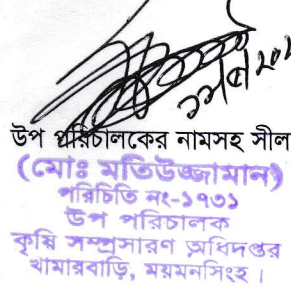 উপ পরিচালকের নামসহ সীল
(মোঃ মতিউজ্জামান)
পরিচিতি নং-১৭৩১
উপ পরিচালক
কৃষি সম্প্রসারণ অধিদপ্তর
খামারবাড়ি, ময়মনসিংহ।